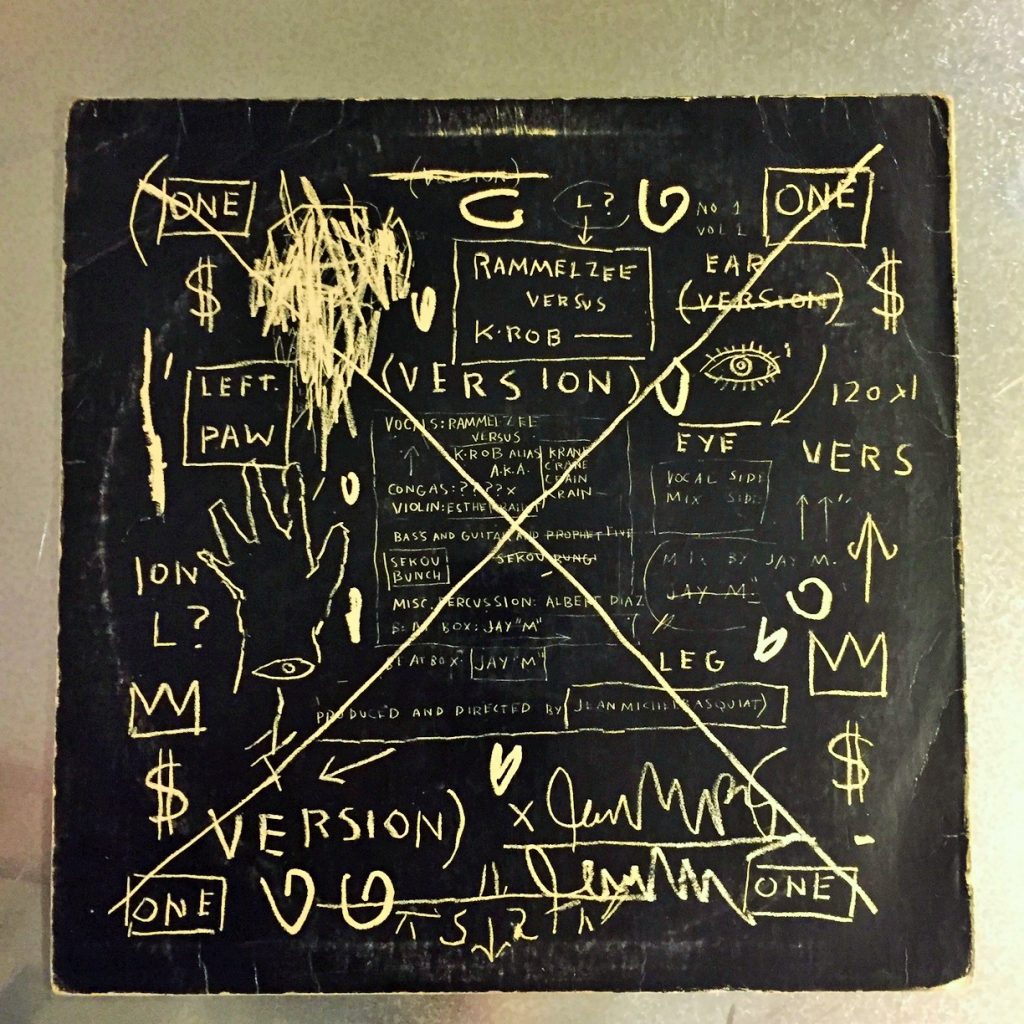 (VERSION)
ONE
L?
NO 1
VOL 1
ONE
RAMMELZEE
VERSUS
K·ROB —
EAR
(VERSION)
$
$
LEFT.
PAW
(VERSION)
120 x1
EYE
VERS
VOCALS: RAMMELZEE
VERSUS
K·ROB ALIAS
A.K.A.
KRANE
CRANE
CRAIN
KRAIN
CONGAS: ????x
VIOLIN:
BASS AND GUITAR AND PROPHET FIVE
SEKOU
BUNCH
SEKOU
MISC. PERCUSSION: ALBERT DIAZ
BEAT BOX: JAY "M"
BEAT BOX: JAY "M"
VOCAL SIDE
MIX SIDE
MIX BY JAY M.
JAY M.
ION
L?
LEG
PRODUCED AND DIRECTED BY (JEAN MICHEL BASQUIAT)
$
$
VERSION)
x
ONE
ONE